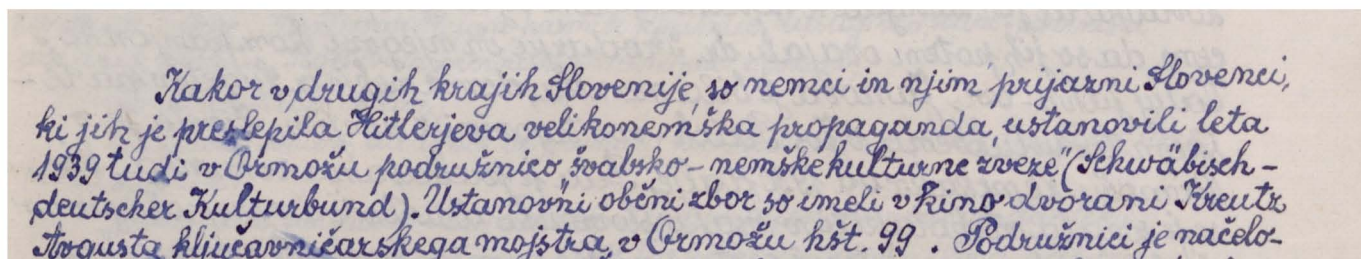 Kakor v drugih krajih Slovenije, so nemci in njim prijazni Slovenci,
ki jih je preslepila Hitlerjeva velikonemška propaganda, ustanovili leta
1939 tudi v Ormožu podružnico "švabsko-nemške kulturne zveze" (Schwäbisch-
deutscher Kulturbund). Ustanovni občni zbor so imeli v kino dvorani Kreutz
Avgusta ključavničarskega mojstra, v Ormožu hšt. 99. Podružnici je načelo-